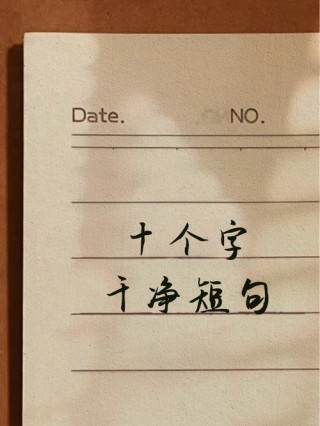 Date. NO.
十个字
干净短句